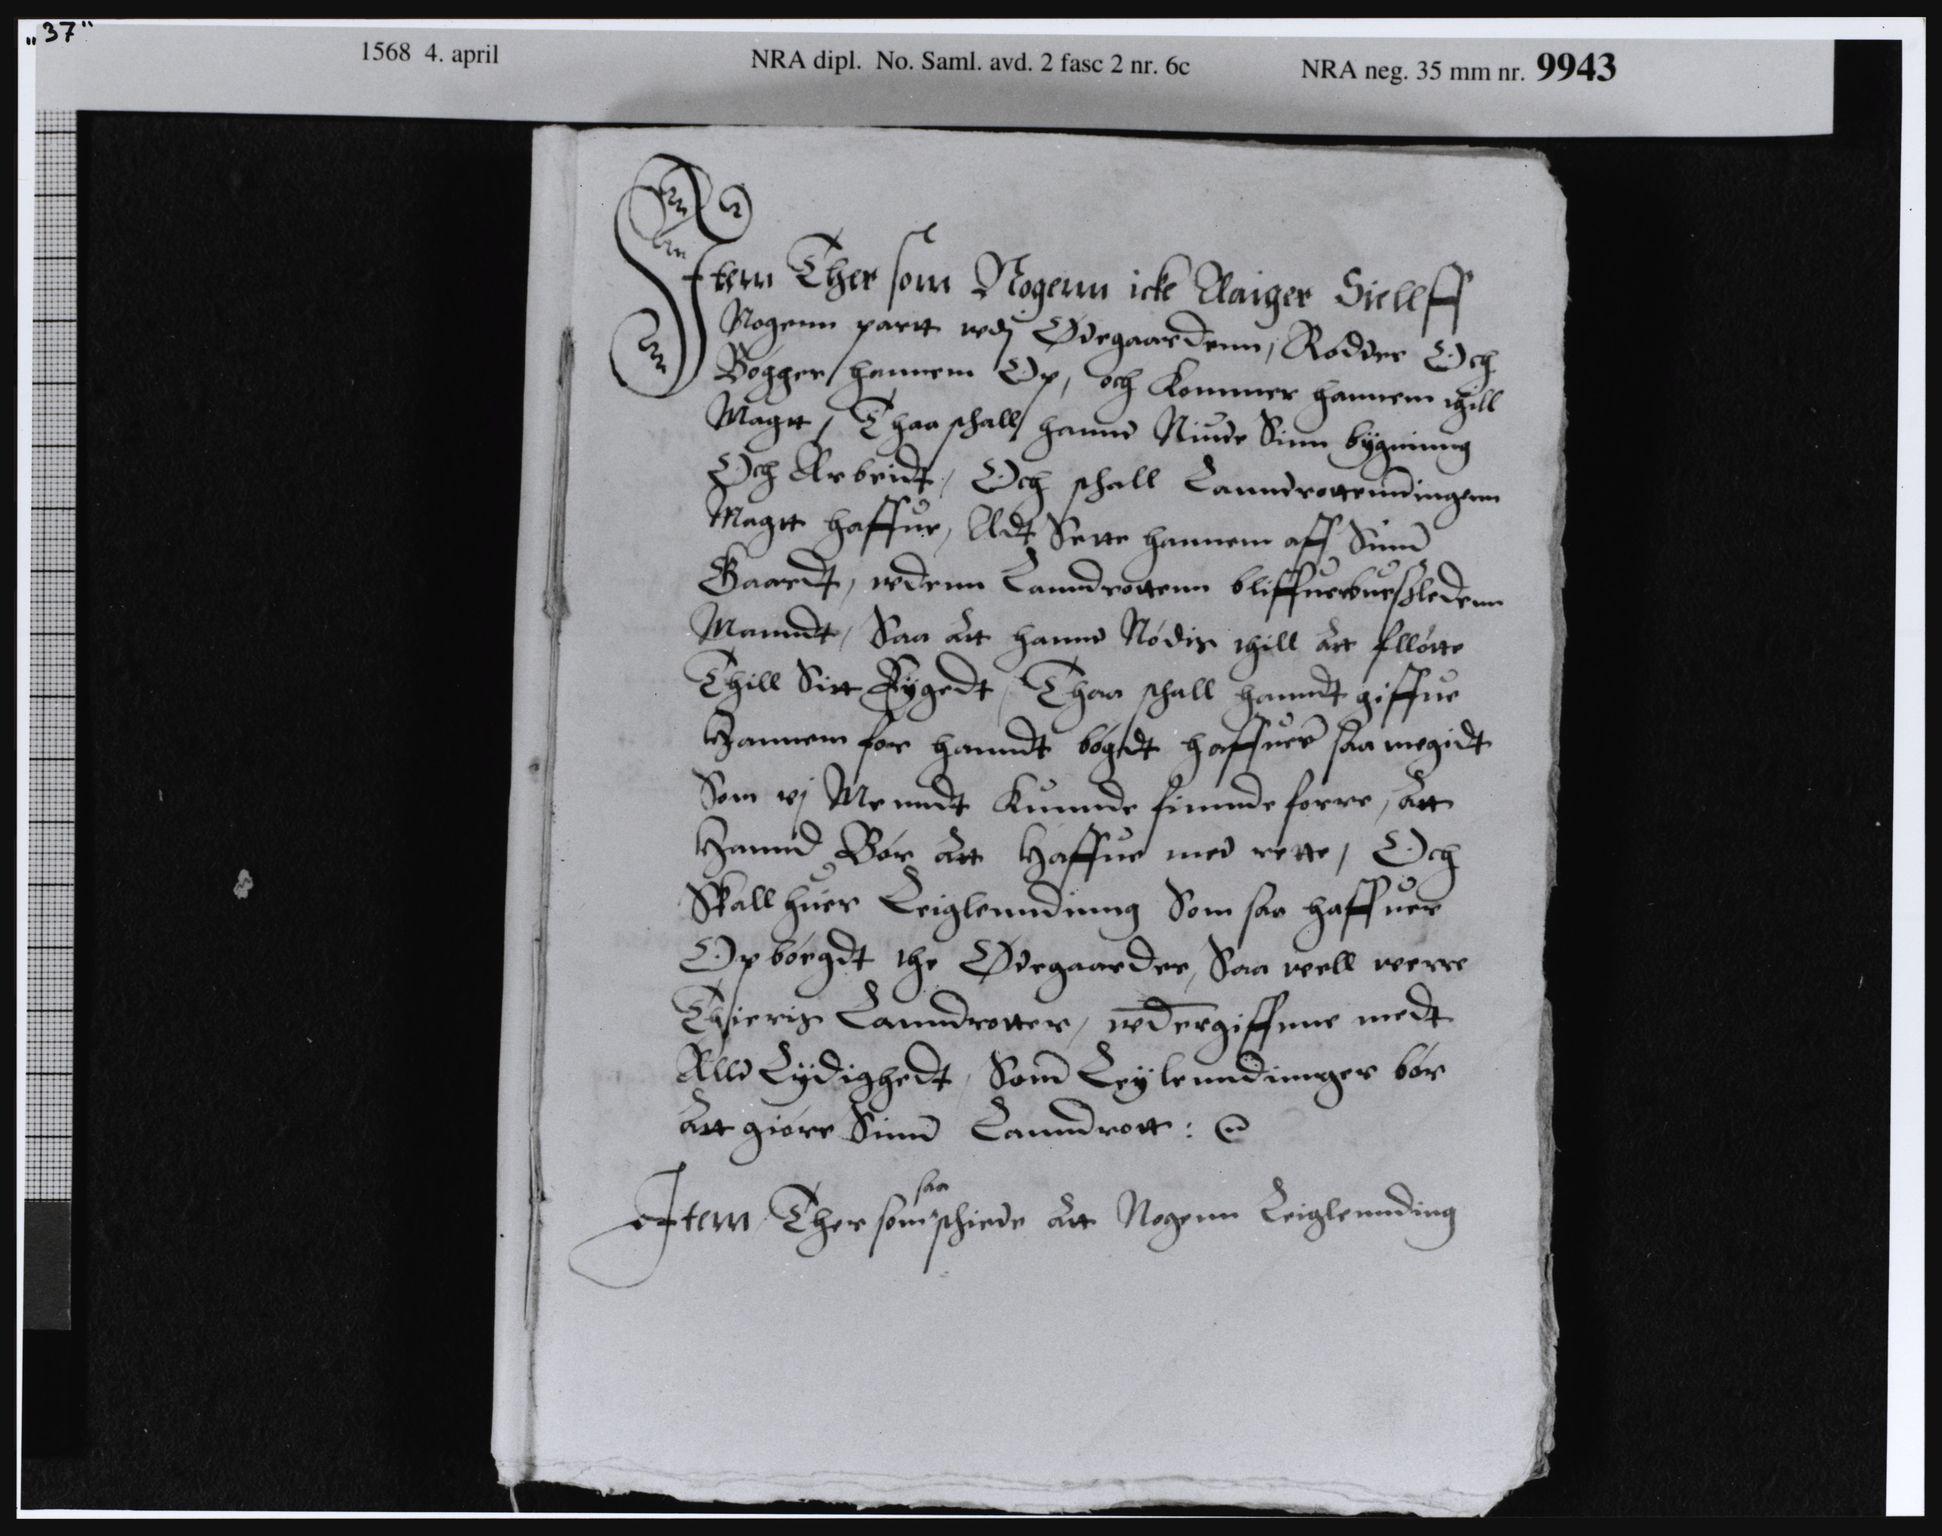 „37"
1568 4. april
NRA dipl. No. Saml. avd. 2 fasc 2 nr. 6c
NRA neg. 35 mm nr. 9943
Item Ther som Nogenn icke Aaiger Siellff
Nogenn partt wdj Ødegaardenn, Rødder Och
Bøgger hannem Op, och Kommer hannem thill
Magtt, Thaa schall hannd Niude Sinn bÿgninng
Och Arbeidt, Och schall Lanndrottenndingenn
Magtt haffue, Adt Sette hannem aff Sinnd
Gaardt, wdenn Lanndrottenn bliffuer
Manndt, Saa att hannd Nødis thill att flløtte
Thill Sitt Bÿgedt, Thaa schall hanndt giffue
Hannem for hanndt bøgdt haffuer saa megidt
Som vj Menndt Kunnde finnde forre, att
Hannd Bør att Haffue med rette, Och
Skall huer Leiglenndinng Som saa haffuer
Opbøegdt the Ødegaarder, Saa well werre
Thieris Lanndrotter, wdergiffnne medt
Alld Lÿdighedt, Som Leÿlenndinnger bør
att giøre Sinnd Lanndrott:
saa
Item Ther som schiede att Nogenn Leiglennding